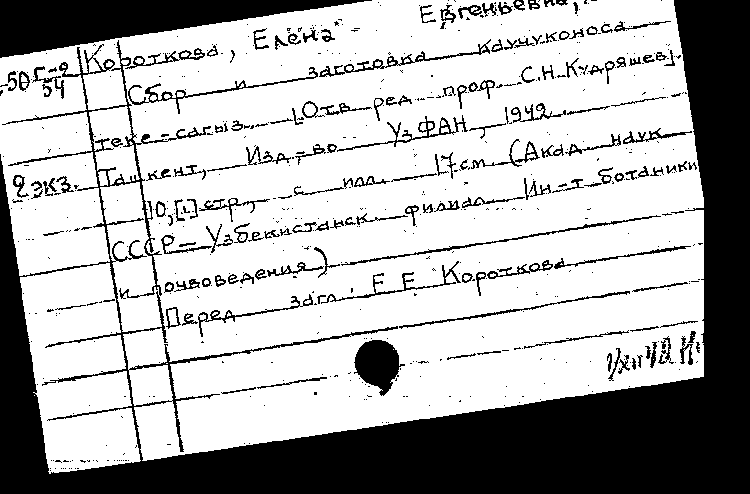 50 Г-2
54
Короткова, Елена Евгеньевна,
Сбор и заготовка каучуконоса
теке-сагыз. [Отв ред проф. С.Н.Кудряшев].
2 экз. Ташкент, Изд-во УзФАН, 1942.
10,[1] стр, с илл. 17 см (Акад наук
СССР - Узбекистанск филиал Ин-т ботаники
и почвоведения)
Перед загл. Е Е Короткова